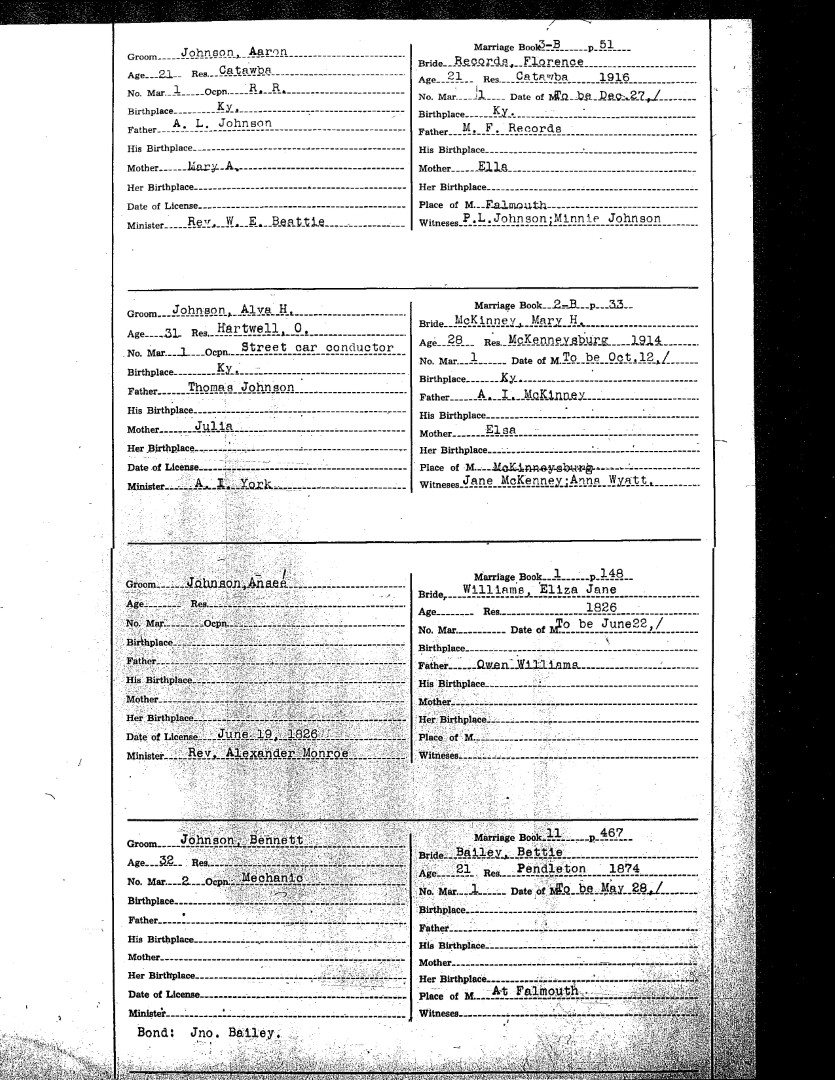 Groom Johnson, Aaron
Age 21 Res. Catawba
No. Mar. 1 Ocpn. R. R.
Birthplace Ky.
Father A. L. Johnson
His Birthplace
Mother Mary A.
Her Birthplace
Date of License
Minister Rev. W. E. Beattie
Marriage Book 3-B p. 51
Bride Records, Florence
Age 21 Res. Catawba 1916
No. Mar. 1 Date of M. To be Dec.27,/
Birthplace Ky.
Father M. F. Records
His Birthplace
Mother Ella
Her Birthplace
Place of M. Falmouth
Witnesses P.L.Johnson;Minnie Johnson
Groom Johnson, Alva H.
Age 31 Res. Hartwell, O.
No. Mar. 1 Ocpn. Street car conductor
Birthplace Ky.
Father Thomas Johnson
His Birthplace
Mother Julia
Her Birthplace
Date of License
Minister A. I. York
Marriage Book 2-B p. 33
Bride McKinney, Mary H.
Age 28 Res. McKenneysburg 1914
No. Mar. 1 Date of M. To be Oct.12,/
Birthplace Ky.
Father A. I. McKinney
His Birthplace
Mother Elsa
Her Birthplace
Place of M. McKinneysburg
Witnesses Jane McKenney;Anna Wyatt.
Groom Johnson, Ansee
Age Res.
No. Mar. Ocpn.
Birthplace
Father
His Birthplace
Mother
Her Birthplace
Date of License June 19, 1826
Minister Rev. Alexander Monroe
Marriage Book 1 p. 148
Bride, Williams, Eliza Jane
Age Res. 1826
No. Mar. Date of M. To be June22,/
Birthplace
Father Owen Williams
His Birthplace
Mother
Her Birthplace
Place of M.
Witnesses
Groom Johnson, Bennett
Age 32 Res.
No. Mar. 2 Ocpn. Mechanic
Birthplace
Father
His Birthplace
Mother
Her Birthplace
Date of License
Minister
Bond: Jno. Bailey.
Marriage Book 11 p. 467
Bride Bailey, Bettie
Age 21 Res. Pendleton 1874
No. Mar. 1 Date of M. To be May 28,/
Birthplace
Father
His Birthplace
Mother
Her Birthplace
Place of M. At Falmouth
Witnesses